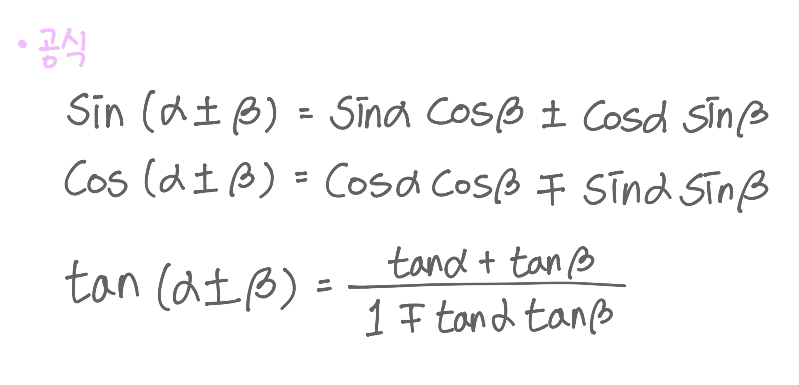 • 공식
Sin (α ± β) = Sinα Cosβ ± Cosα Sinβ
Cos (α ± β) = Cosα Cosβ ∓ Sinα Sinβ
tan (α ± β) = (tanα + tanβ) / (1 ∓ tanα tanβ)